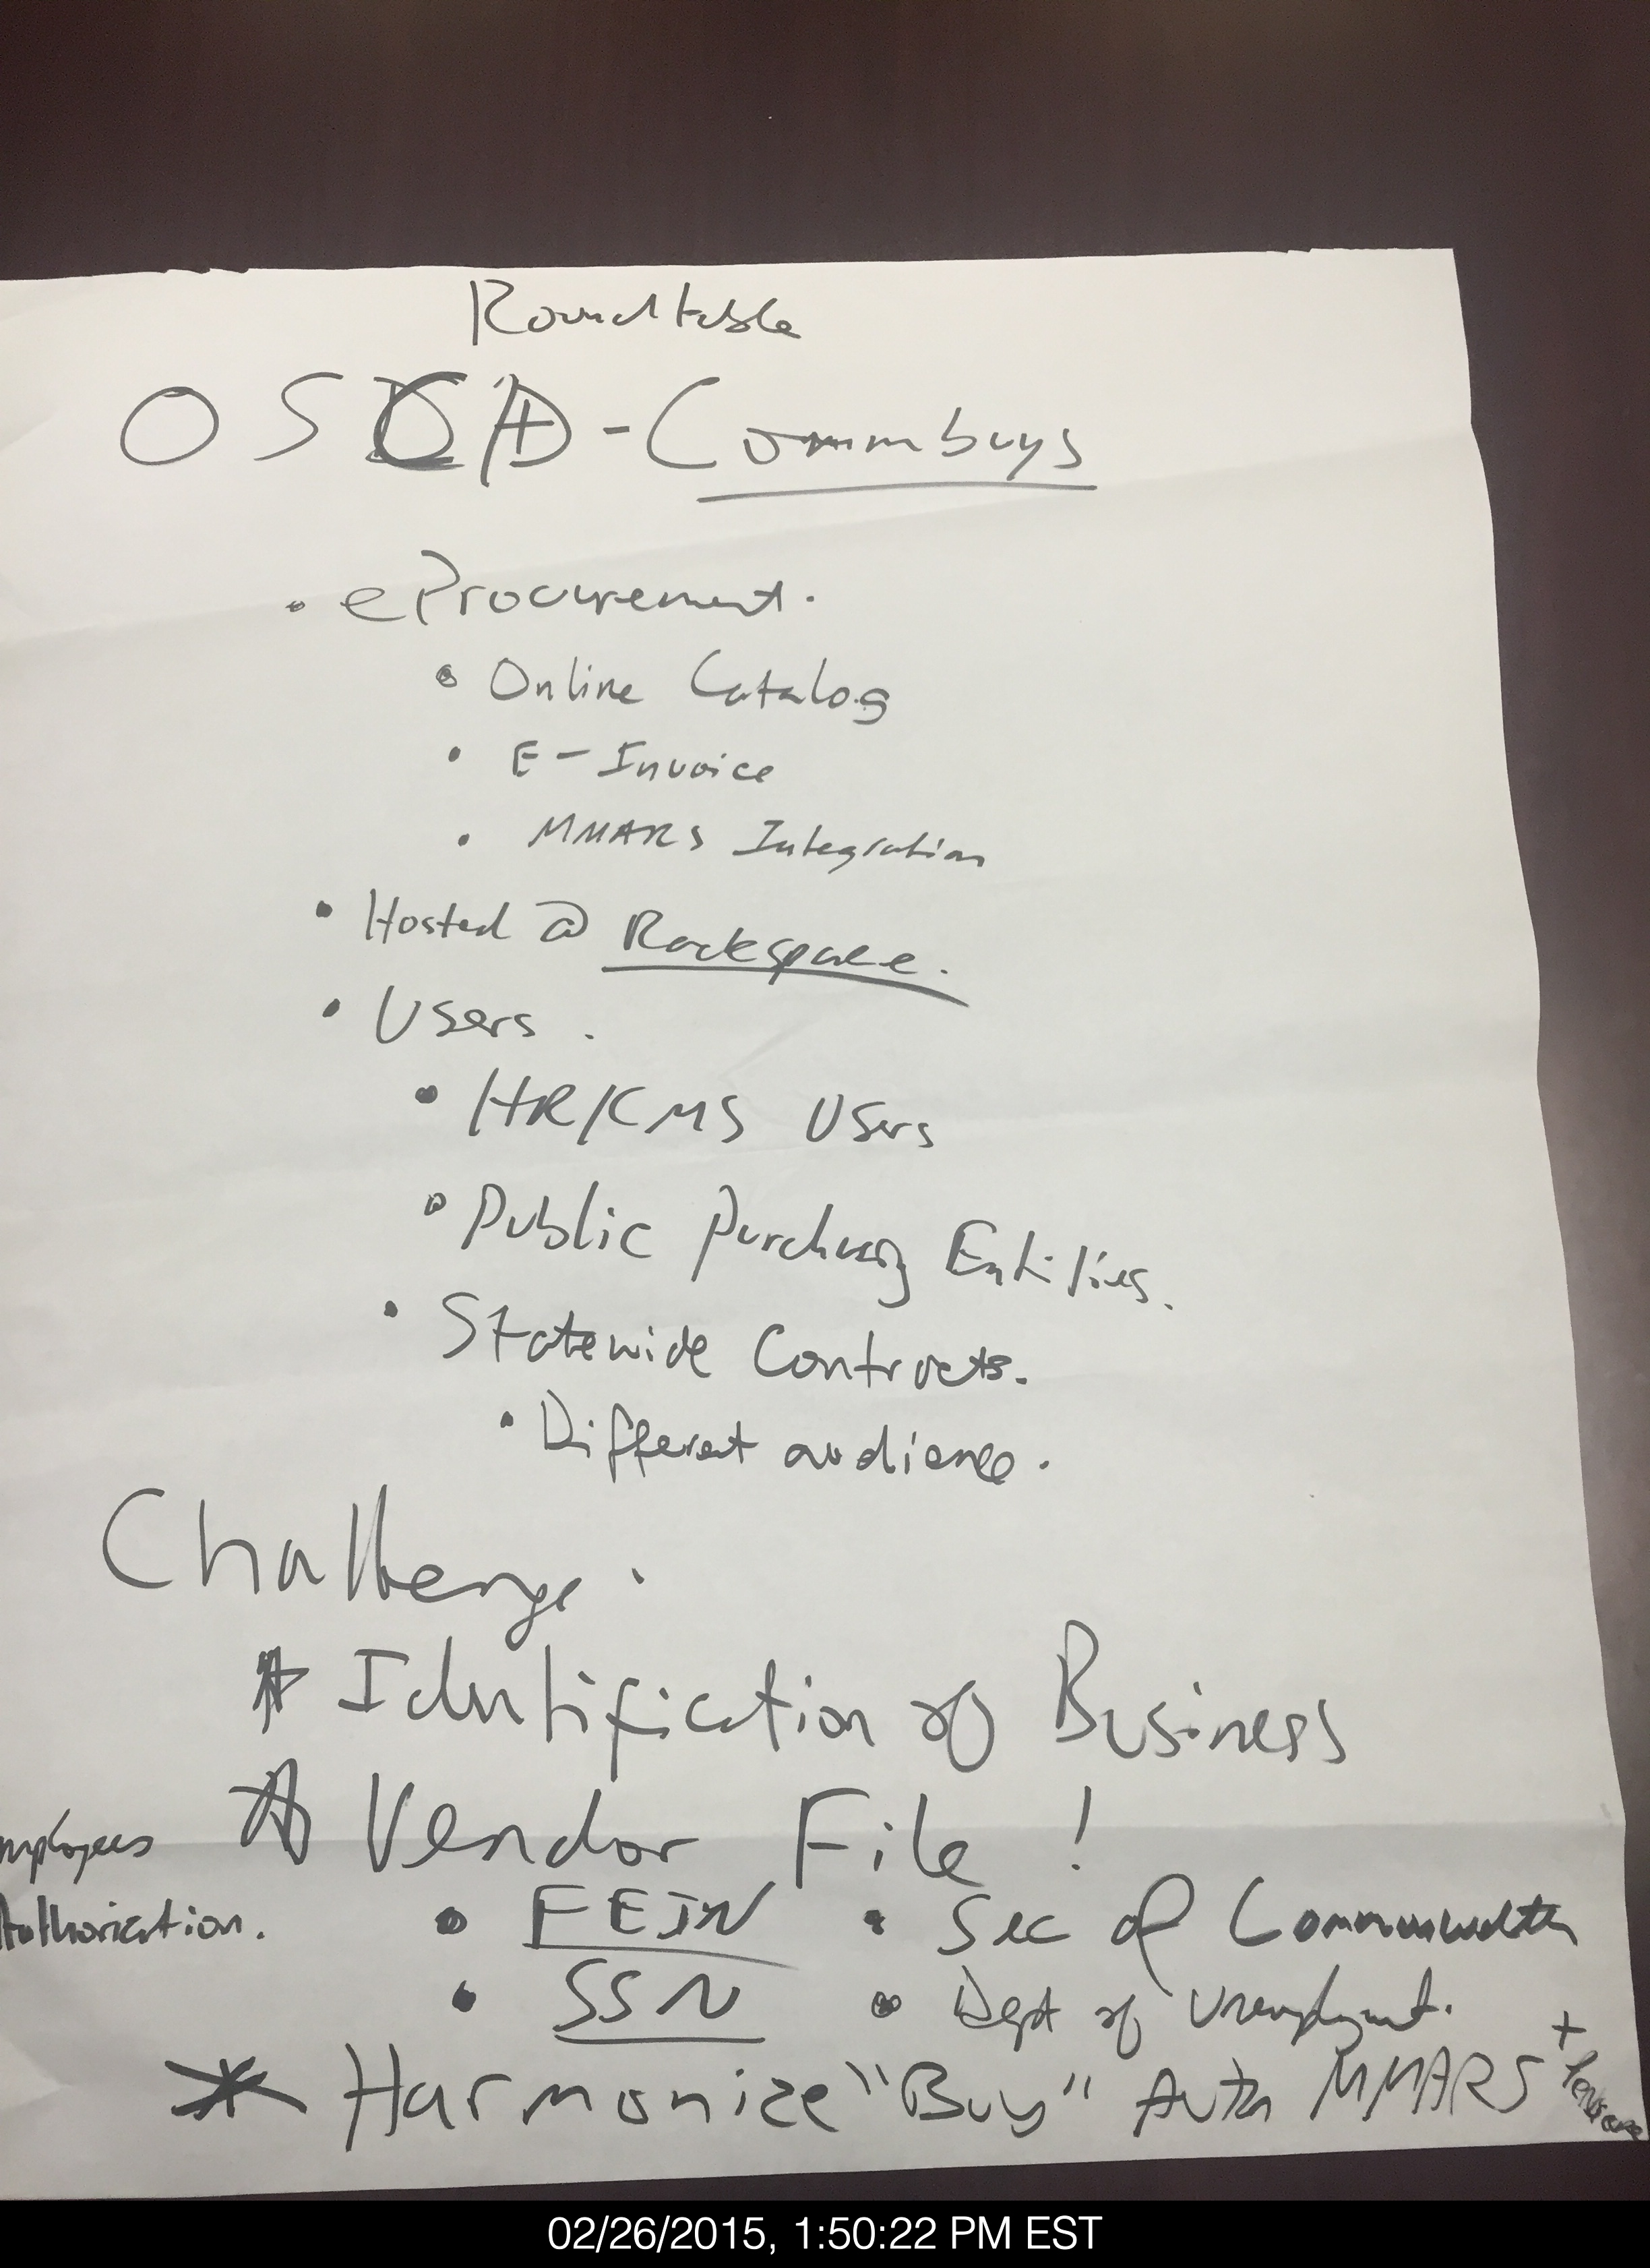 Roundtable
OSD - Commbuys
• eProcurement.
• Online Catalog
• E-Invoice
• MMARS Integration
• Hosted @ Rackspace.
• Users.
• HR/CMS Users
• Public Purchasing Entities.
• Statewide Contracts.
• Different audience.
Challenge.
* Identification of Business
* Vendor File!
mployees
Authorization.
• FEIN • Sec of Commonwealth
• SSN • Dept of Unemployment.
* Harmonize "Buy" Auth MMARS +
02/26/2015, 1:50:22 PM EST